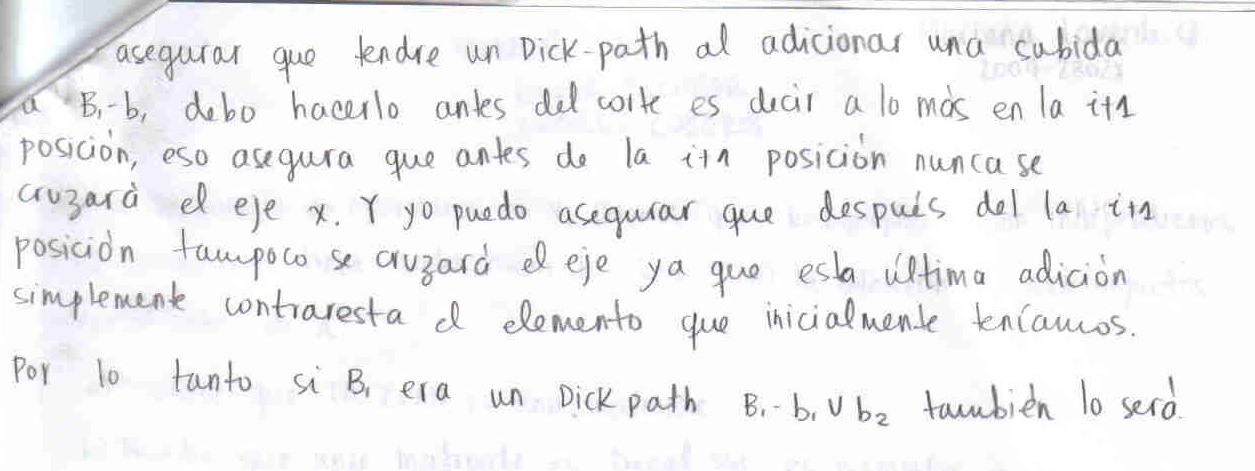 asegurar que tendre un Dick-path al adicionar una subida
a B₁-b₁ debo hacerlo antes del corte es decir a lo más en la i+1
posición, eso asegura que antes de la i+1 posición nunca se
cruzará el eje x. Y yo puedo asegurar que después del la i+1
posición tampoco se cruzará el eje ya que esta última adición
simplemente contraresta el elemento que inicialmente teníamos.
Por lo tanto si B₁ era un Dick path B₁-b₁∪b₂ también lo será.